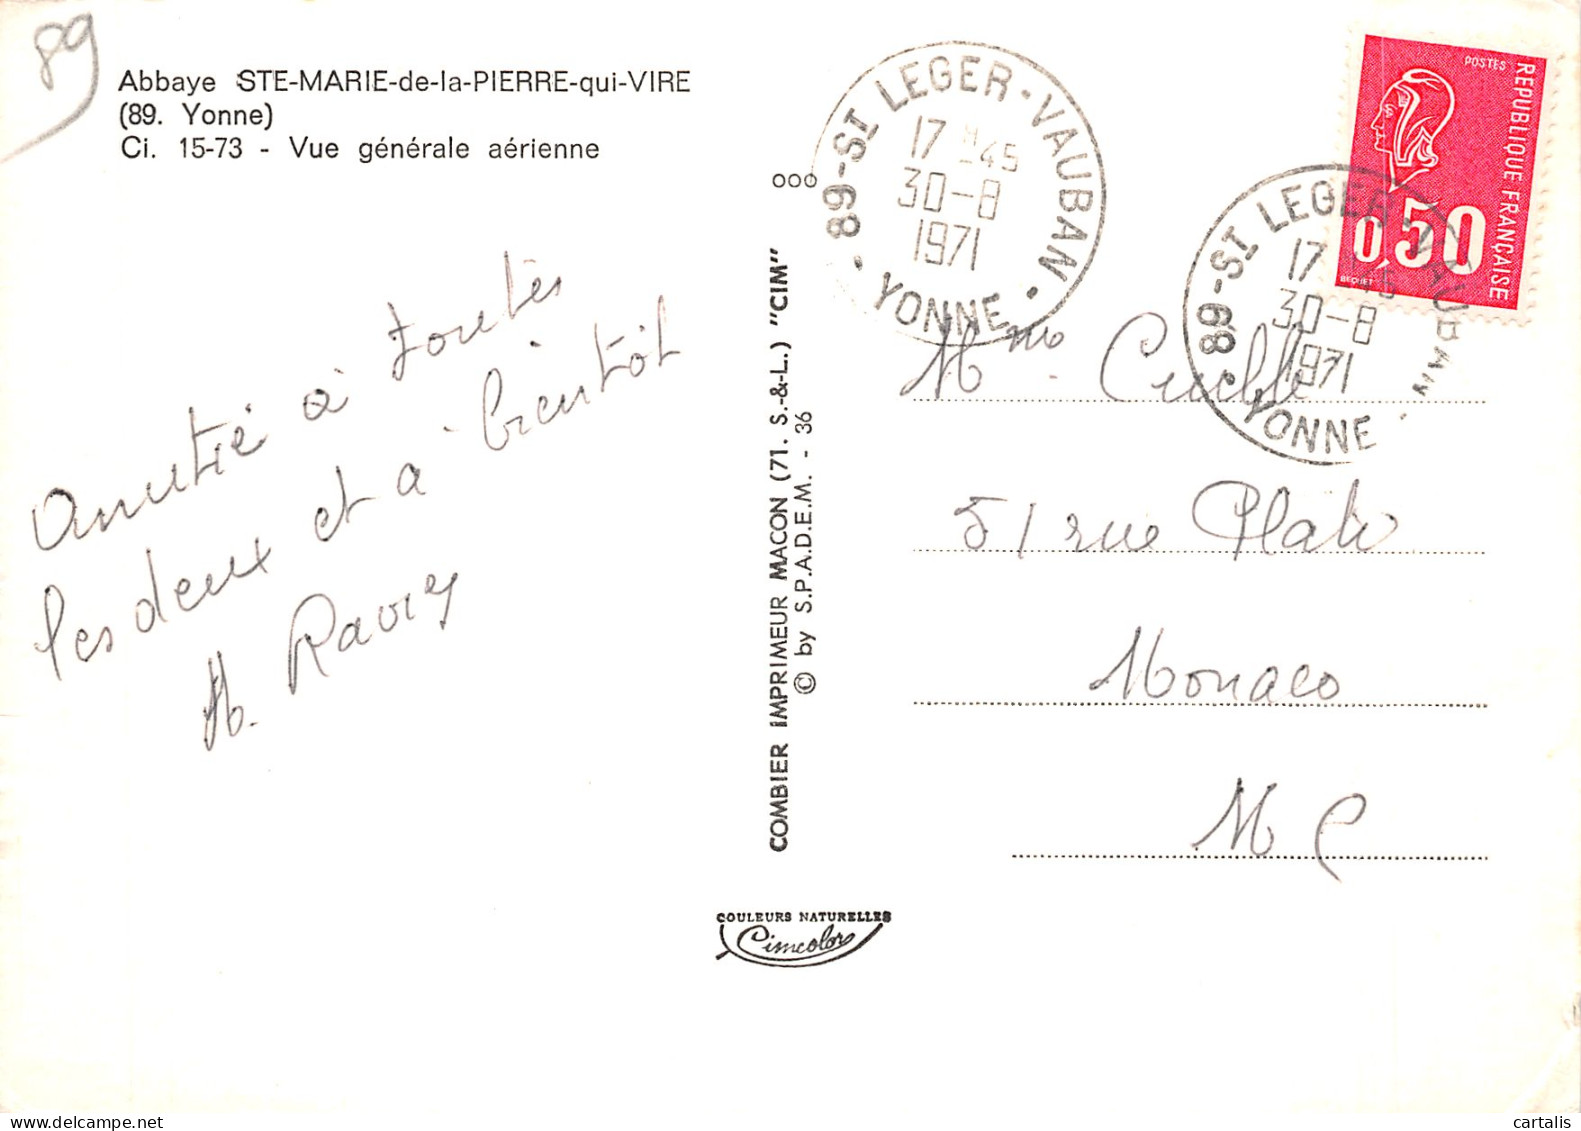 89
Abbaye STE-MARIE-de-la-PIERRE-qui-VIRE
(89. Yonne)
Ci. 15-73 - Vue générale aérienne
Amitié à toutes
les deux et à bientôt
A. Ravier
COMBIER IMPRIMEUR MACON (71. S.-&-L.) "CIM"
© by S.P.A.D.E.M. - 36
COULEURS NATURELLES
Cimcolor
89-ST LEGER-VAUBAN
17 H -45
30-8
1971
YONNE
POSTES
REPUBLIQUE FRANÇAISE
0,50
BEQUET
89-ST LEGER-VAUBAN
17 45
30-8
1971
YONNE
Mme
51 rue Plati
Monaco
M C
cartalis